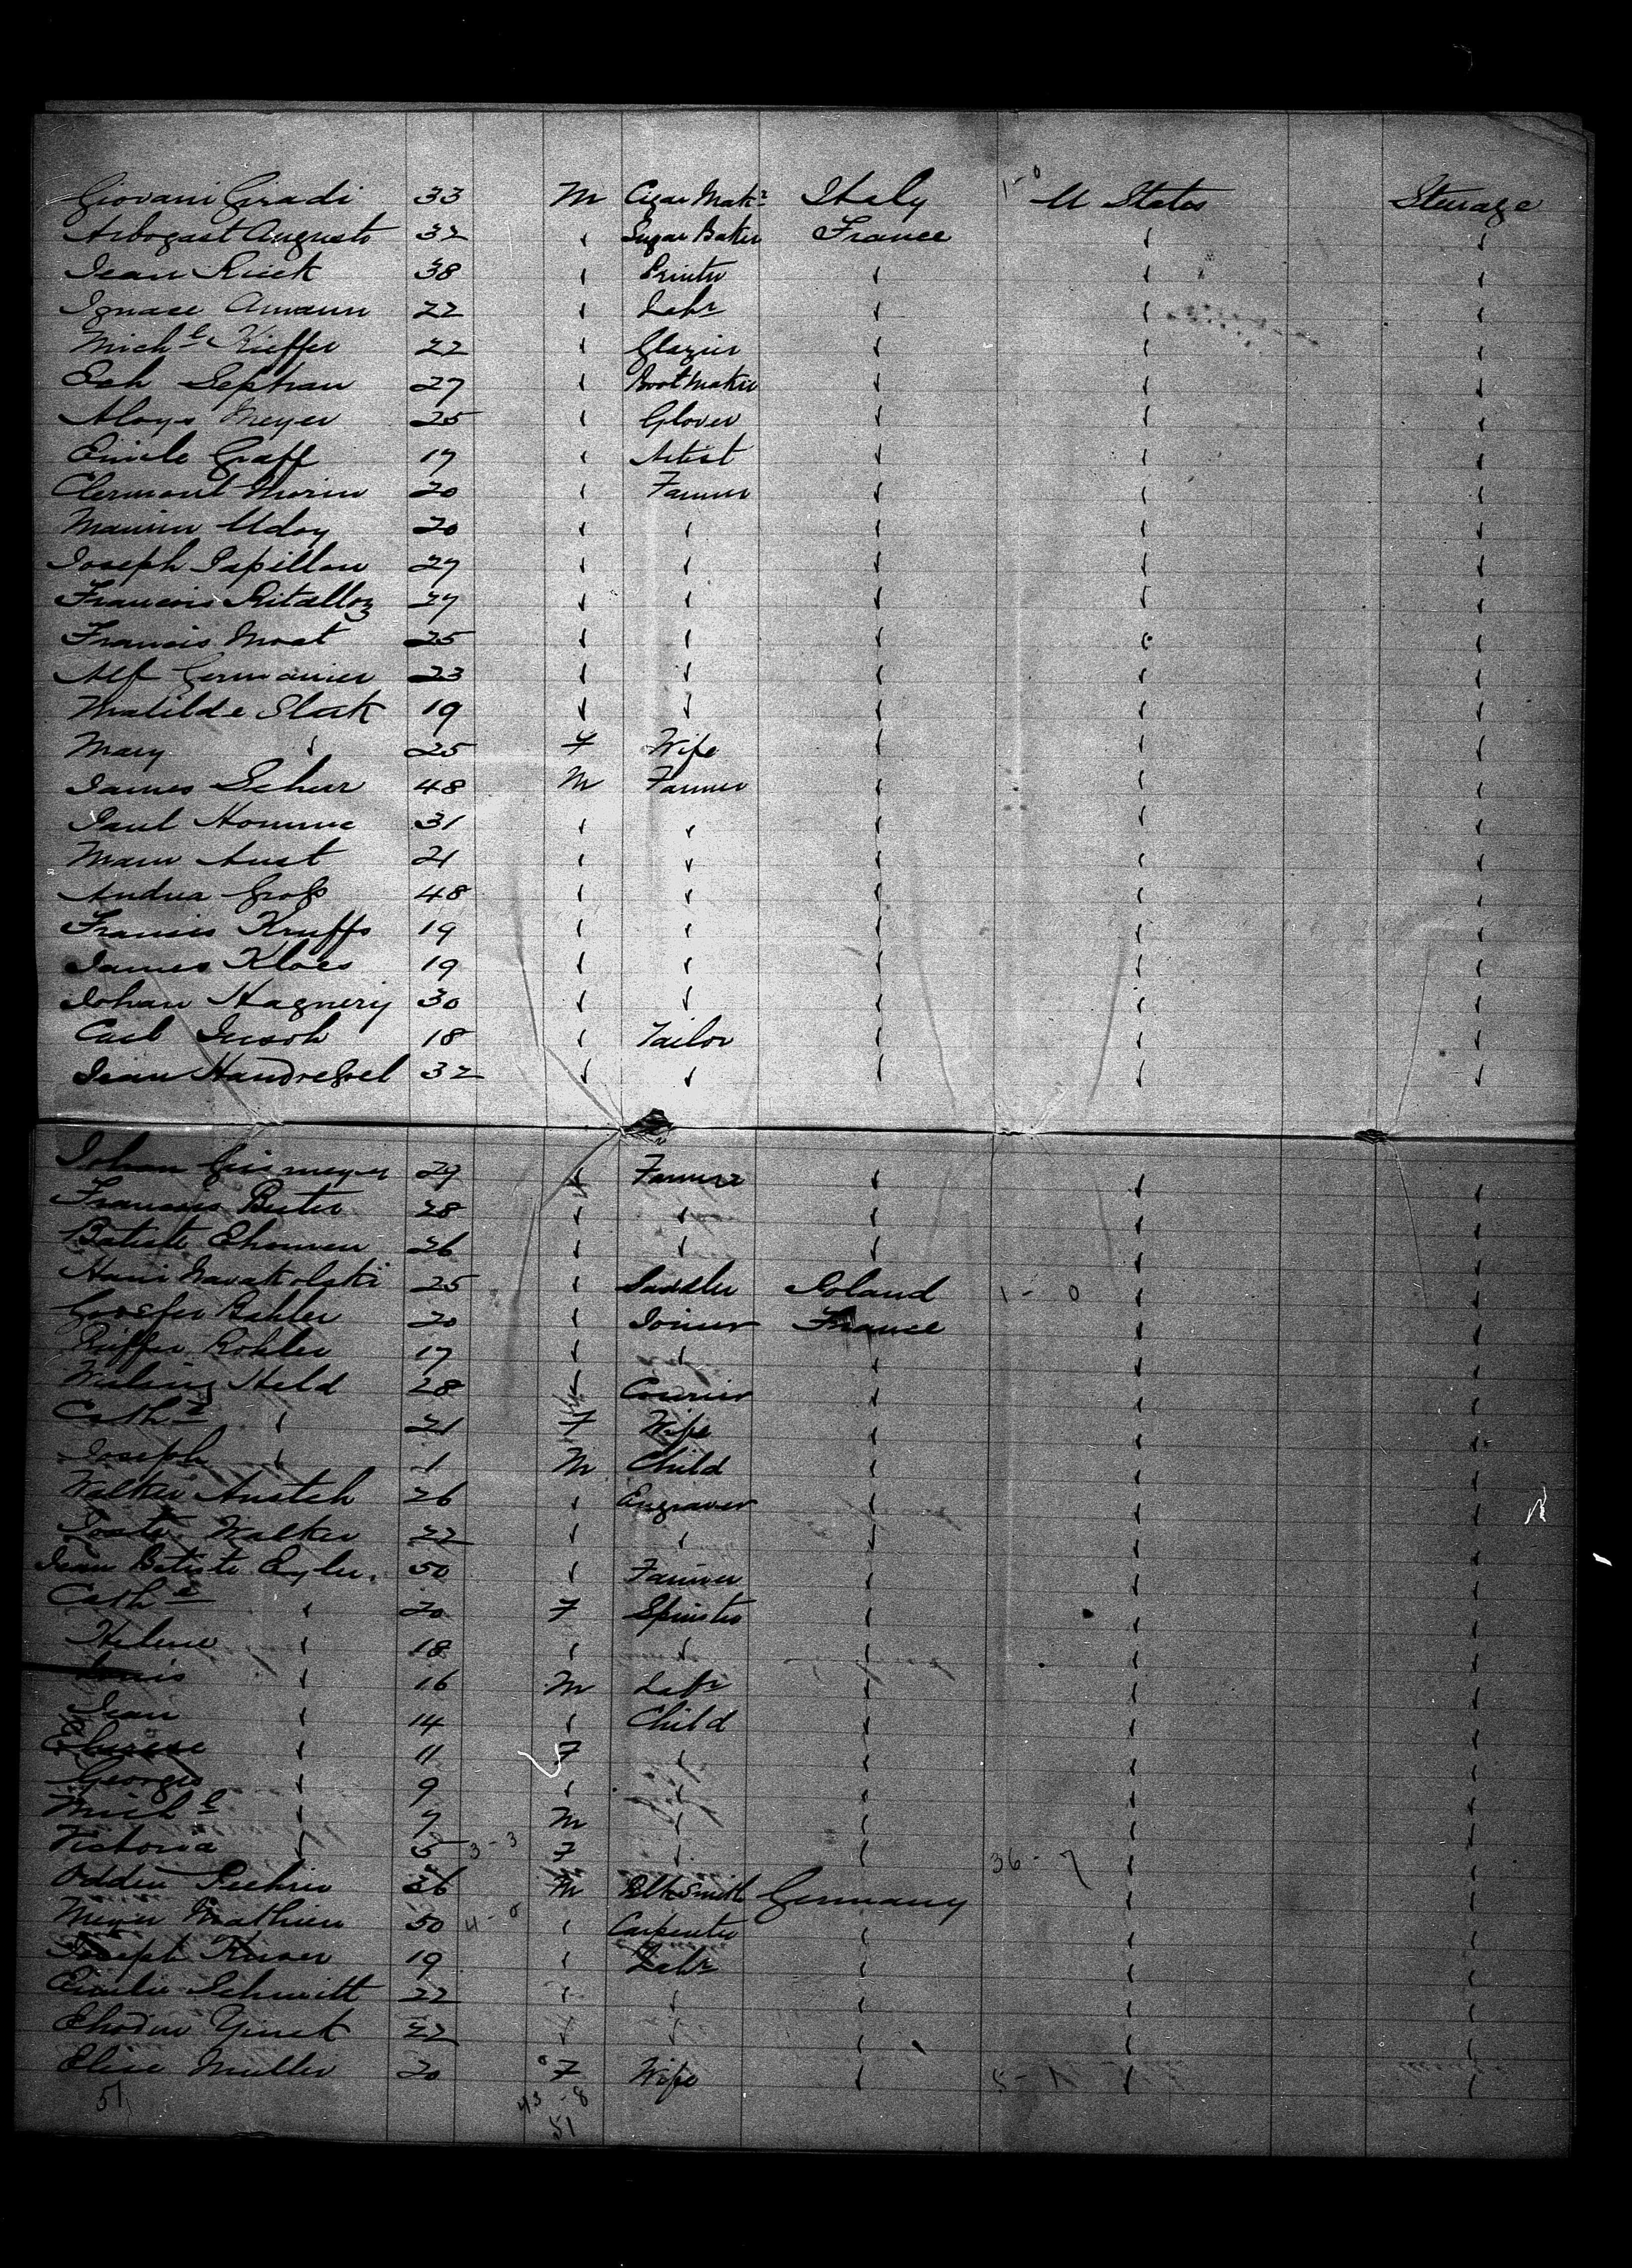 Giovani Giradi 33 M Cigar Makr Italy 1-0 U States Steerage
Arbogast Augusto 32 Sugar Baker France
Jean Rieck 38 Printer
Ignace Amann 22 Labr
Michl Kieffer 22 Glazier
Esh Sephan 27 Boot Maker
Aloys Meyer 25 Glover
Emile Graff 17 Artist
Clermont Morin 20 Farmer
Udoy 20
Joseph Papillon 27
Francois Ritalloz 27
Francis Moat 25
Alf Germanier 23
Matilde Slak 19
Mary 25 F Wife
James Scheur 48 M Farmer
Paul Homme 31
Aust 21
Andrea Groß 48
Francis Kruffs 19
James Kloes 19
Johan Hagnery 30
Carl 18 Tailor
Jean 32
Johan Gismeyer 29 Farmer
Francois Buter 28
Batiste 26
25 Saddler Poland 1-0
Bahler 20 Joiner France
Rieffer Rohler 17
Held 28 Courier
Cathe 21 F Wife
Joseph 1 M Child
Walker Austeh 26 Engraver
Walker 22
Jean Batiste Eyler. 50 Farmer
Cathe 20 F Spinster
Helene 18
Louis 16 M Labr
Jean 14 Child
Therese 11 F
Georges 9
Michl 7 M
Victoria 5 3-3 F 36-7
36 M Blksmith Germany
Meyer Mathieu 50 4-0 Carpenter
Joseph 19 Labr
Emilie Schmitt 22
22
Elise Muller 20 F Wife 5-1
51 43-8
51